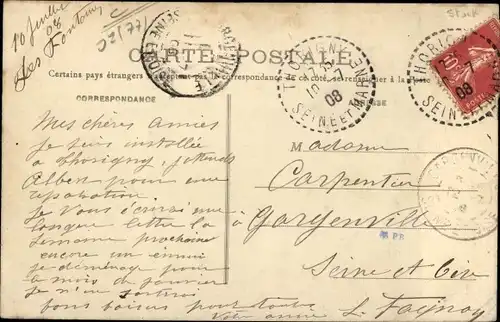 10 Juillet
08
Les Fontaines
02(77)
Stock
CARTE POSTALE
Certains pays étrangers n'acceptent pas la correspondance de ce côté, se renseigner à la Poste
CORRESPONDANCE
ADRESSE
THORIGNY
10 -7
08
SEINE ET MARNE
THORIGNY
10 -7
08
SEINE ET MARNE
Mes chères Amies
Je suis installée
à Thorigny, j'attends
Albert pour une
reparation
Je Vous écrirai une
longue lettre la
Semaine prochaine
encore un ennui
je déménage pour
Madame
Carpentier
à Gargenville
PR
Seine et Oise
bons baisers pour toutes
Votre amie L. Fagnoy